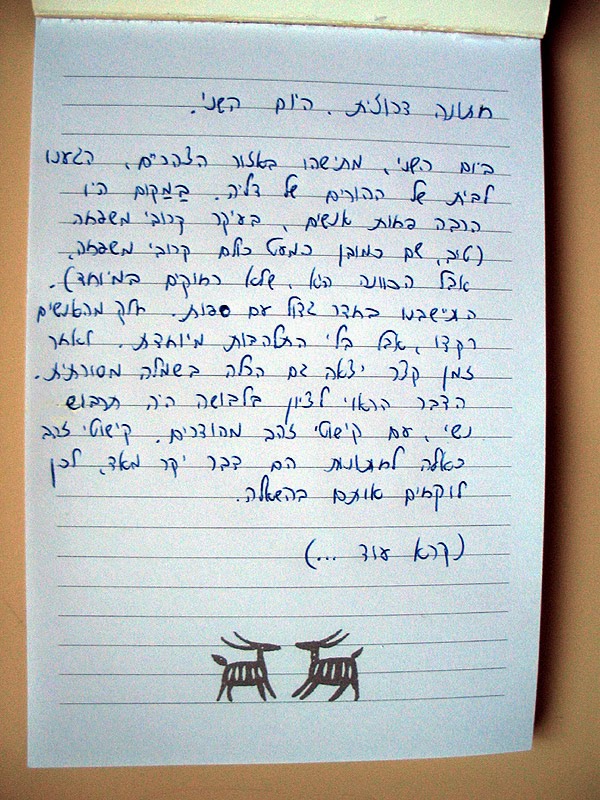 חתונה דרוזית. היום השני.
ביום השני, מתישהו באזור הצהרים, הגענו
לבית של ההורים של דליה. בַּמַקום היו
הרבה פחות אנשים, בעיקר קרובי משפחה
(טוב, שם כמובן כמעט כולם קרובי משפחה,
אבל הכוונה היא, שלא רחוקים במיוחד).
התישבנו בחדר גדול עם ספות. חלק מהאנשים
רקדו, אבל בלי התלהבות מיוחדת. לאחר
זמן קצר יצאה גם הכלה בשמלה מסורתית.
הדבר הראוי לציון בלבושה היה תרבוש
נשי, עם קישוטי זהב מהודרים. קישוטי זהב
כאלה לחתונות הם דבר יקר מאד, לכן
לוקחים אותם בהשאלה.
(קרא עוד ...)